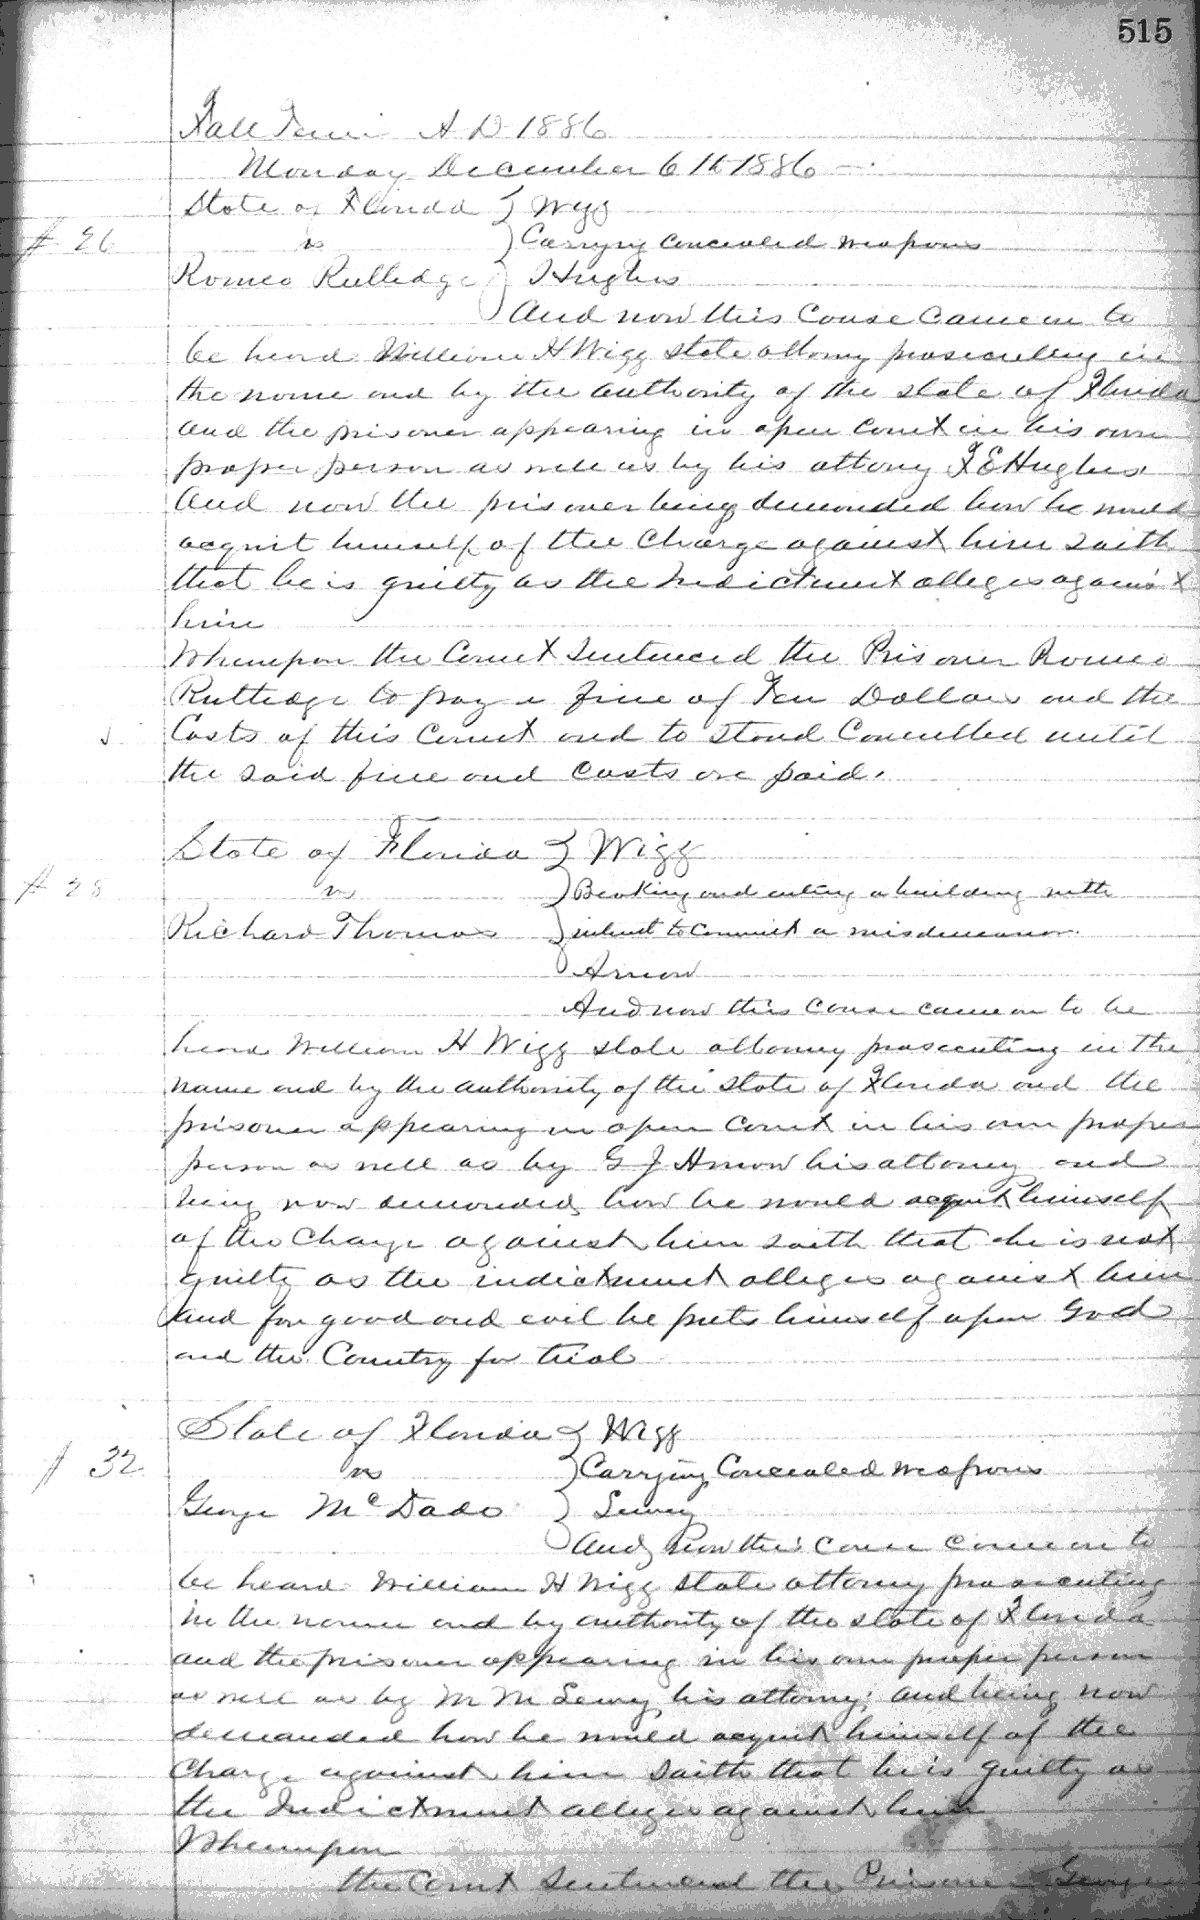 515
Fall Term A D 1886
Monday December 6th 1886
State of Florida } Wigg
# 26 vs } Carrying Concealed weapons
Romeo Rutledge } Hughes
And now this Cause Came on to
be heard William H Wigg State attorny prosecuting in
the name and by the authority of the state of Florida
and the prisoner appearing in open Court in his own
proper person as well as by his attorny F E Hughes
And now the prisoner being demanded how he would
acquit himself of the Charge against him saith
that he is guilty as the Indictment alleges against
him
Whereupon the Court Sentenced the Prisoner Romeo
Rutledge to pay a fine of Ten Dollars and the
Costs of this Court and to Stand Committed until
the said fine and Costs are paid.
State of Florida } Wigg
# 28 vs } Breaking and entering a building with
Richard Thomas } intent to Commit a misdemeanor.
Arnow
And now this cause came on to be
heard William H Wigg state attorney prosecuting in the
name and by the authority of the state of Florida and the
prisoner appearing in open Court in his own proper
person as well as by G J Arnow his attorney and
being now demanded how he would acquit himself
of the Charge against him saith that he is not
guilty as the indictment alleges against him
and for good and evil he puts himself upon God
and the Country for trial
State of Florida } Wigg
# 32 vs } Carrying Concealed weapons
George McDado }
And now this cause came on to
be heard William H Wigg State attorney prosecuting
in the name and by authority of the state of Florida
and the prisoner appearing in his own proper person
as well as by M M his attorny; and being now
demanded how he would acquit himself of the
Charge against him saith that he is guilty as
the Indictment alleges against him
Whereupon
the Court Sentenced the Prisoner George